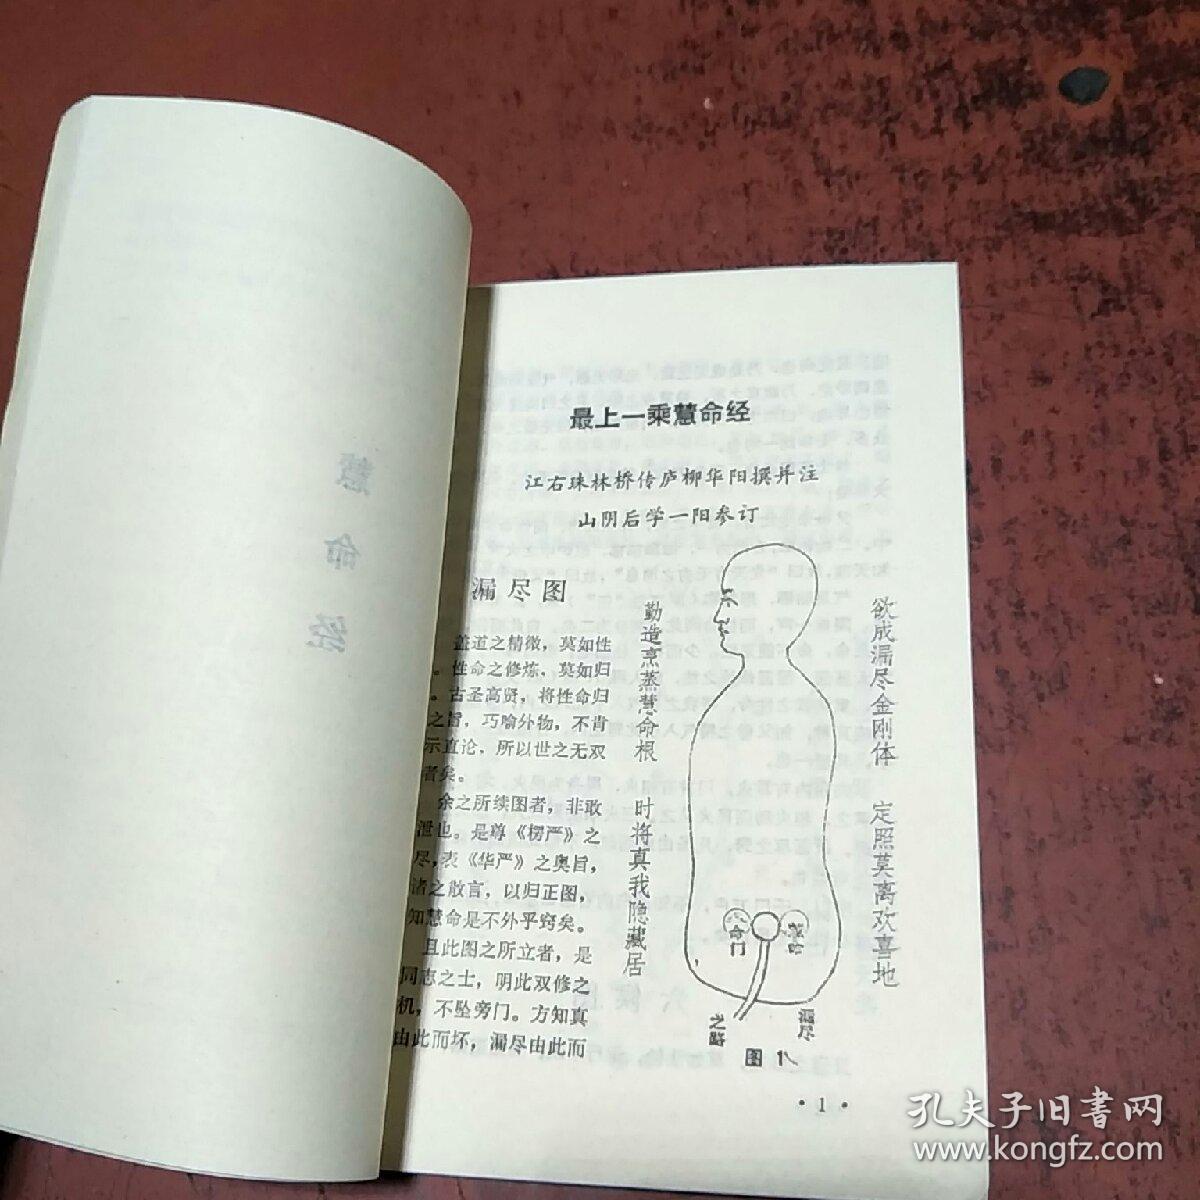 慧命经
最上一乘慧命经
江右珠林桥传庐柳华阳撰并注
山阴后学一阳参订
漏尽图
盖道之精微，莫如性
。性命之修炼，莫如归
。古圣高贤，将性命归
之旨，巧喻外物，不肯
示直论，所以世之无双
者矣。
余之所续图者，非敢
泄也。是尊《楞严》之
尽，表《华严》之奥旨，
诸之散言，以归正图，
知慧命是不外乎窍矣。
且此图之所立者，是
同志之士，明此双修之
机，不坠旁门。方知真
由此而坏，漏尽由此而
欲成漏尽金刚体
定照莫离欢喜地
勤造烹蒸慧命根
时将真我隐藏居
命门
漏尽
之路
图1
·1·
孔夫子旧书网
www.kongfz.com